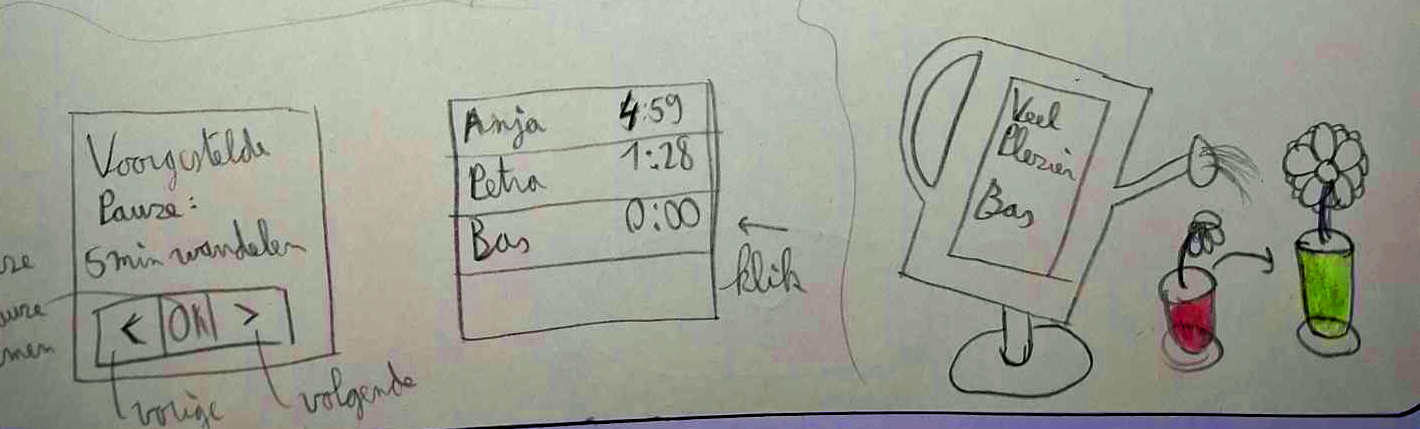 Voorgestelde
Pauze:
5 min wandelen
< OK >
vorige
volgende
Anja 4:59
Petra 1:28
Bas 0:00
← klik
Veel
Plezier
Bas